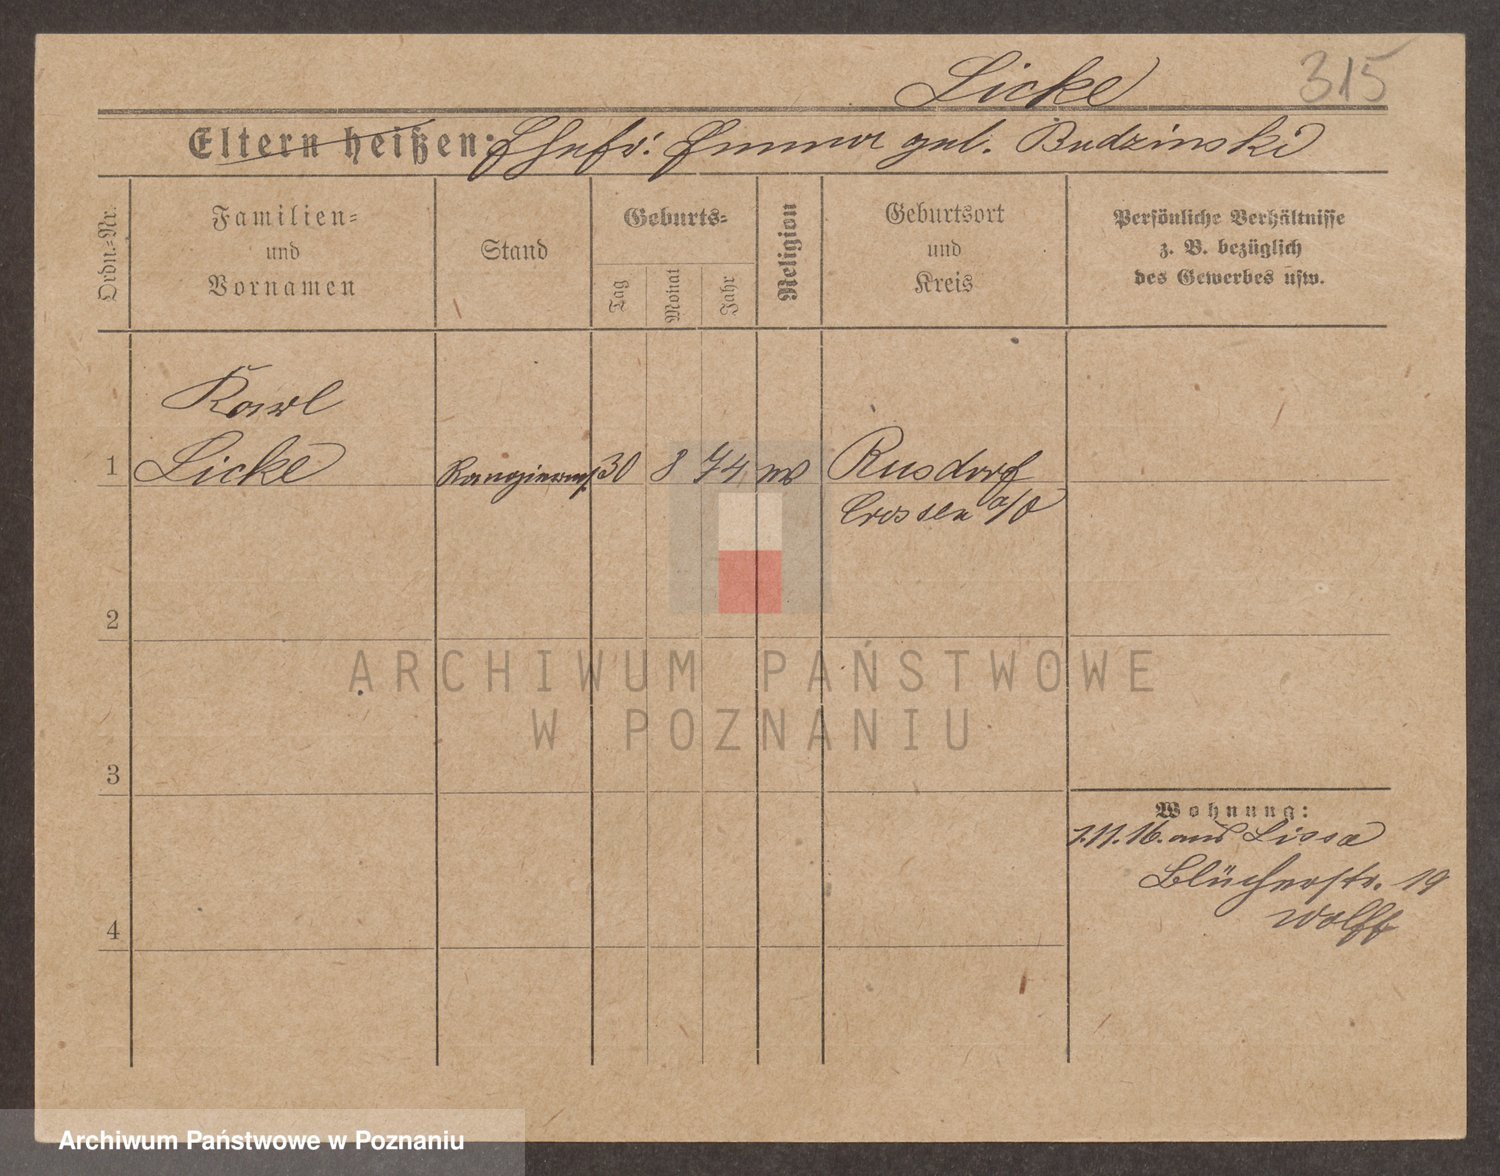 Licke 315
Eltern heißen: Ehefr: Emma geb. Budzinski
Ordn.-Nr.
Familien-
und
Vornamen
Stand
Geburts-
Tag
Monat
Jahr
Religion
Geburtsort
und
Kreis
Persönliche Verhältnisse
z. B. bezüglich
des Gewerbes usw.
Karl
1 Licke 30 8 74 Rusdorf
Crossen a/O
2
3
4
Wohnung:
1.11.16. aus Lissa
Blücherstr. 19
Wolff
ARCHIWUM PAŃSTWOWE
W POZNANIU
Archiwum Państwowe w Poznaniu